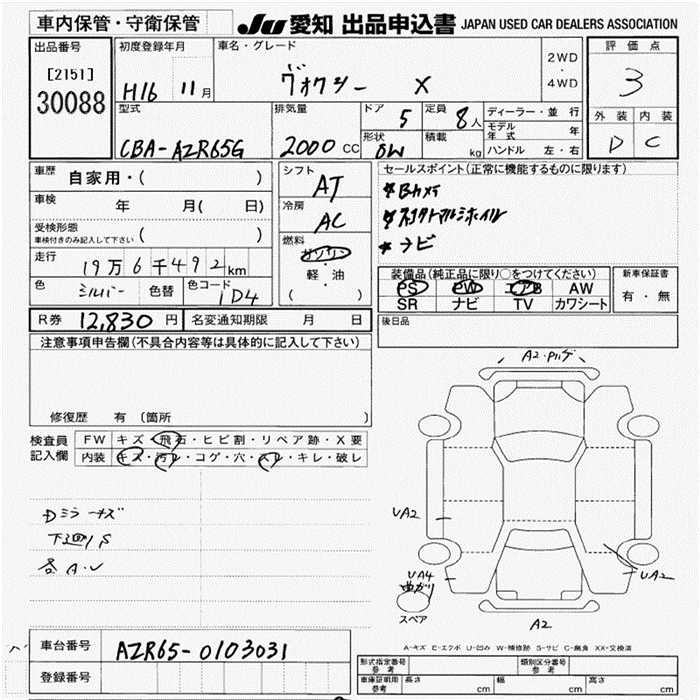 車内保管・守衛保管 JU 愛知 出品申込書 JAPAN USED CAR DEALERS ASSOCIATION
出品番号 初度登録年月 車名・グレード 評価点
[2151] 2WD
30088 H16 11月 ヴォクシー X ・ 3
4WD
外装 内装
型式 排気量 ドア 5 定員 8人 ディーラー・並行 D C
モデル年式 年
CBA-AZR65G 2000CC 形状 DW 積載 kg ハンドル 左・右
車歴 自家用・( ) シフト AT セールスポイント(正常に機能するものに限ります)
車検 年 月( 日) 冷房 AC *Bカメラ
受検形態 車検付きのみ記入して下さい ( ) 燃料 ガソリン
走行 19万6千492km 軽・油 *ナビ
( )
色 シルバー 色替 色コード 1D4 装備品(純正品に限り○をつけてください) 新車保証書
PS PW エアB AW 有・無
SR ナビ TV カワシート
R券 12,830円 名変通知期限 月 日 後日品
注意事項申告欄(不具合内容等は具体的に記入して下さい)
修復歴 有 (箇所 )
検査員 FW キズ・飛石・ヒビ割・リペア跡・X要
記入欄 内装 キズ・汚レ・コゲ・穴・スレ・キレ・破レ
Dミラーキズ
下廻りS
各A・U
A2・Pハゲ
UA2
UA4
曲ガリ
UA2
スペア
A2
A-キズ E-エクボ U-凹み W-補修跡 S-サビ C-腐食 XX-交換済
車台番号 AZR65-0103031
登録番号
形式指定番号 参考 類別区分番号 参考
車庫証明用 参考 長さ cm 幅 cm 高さ cm